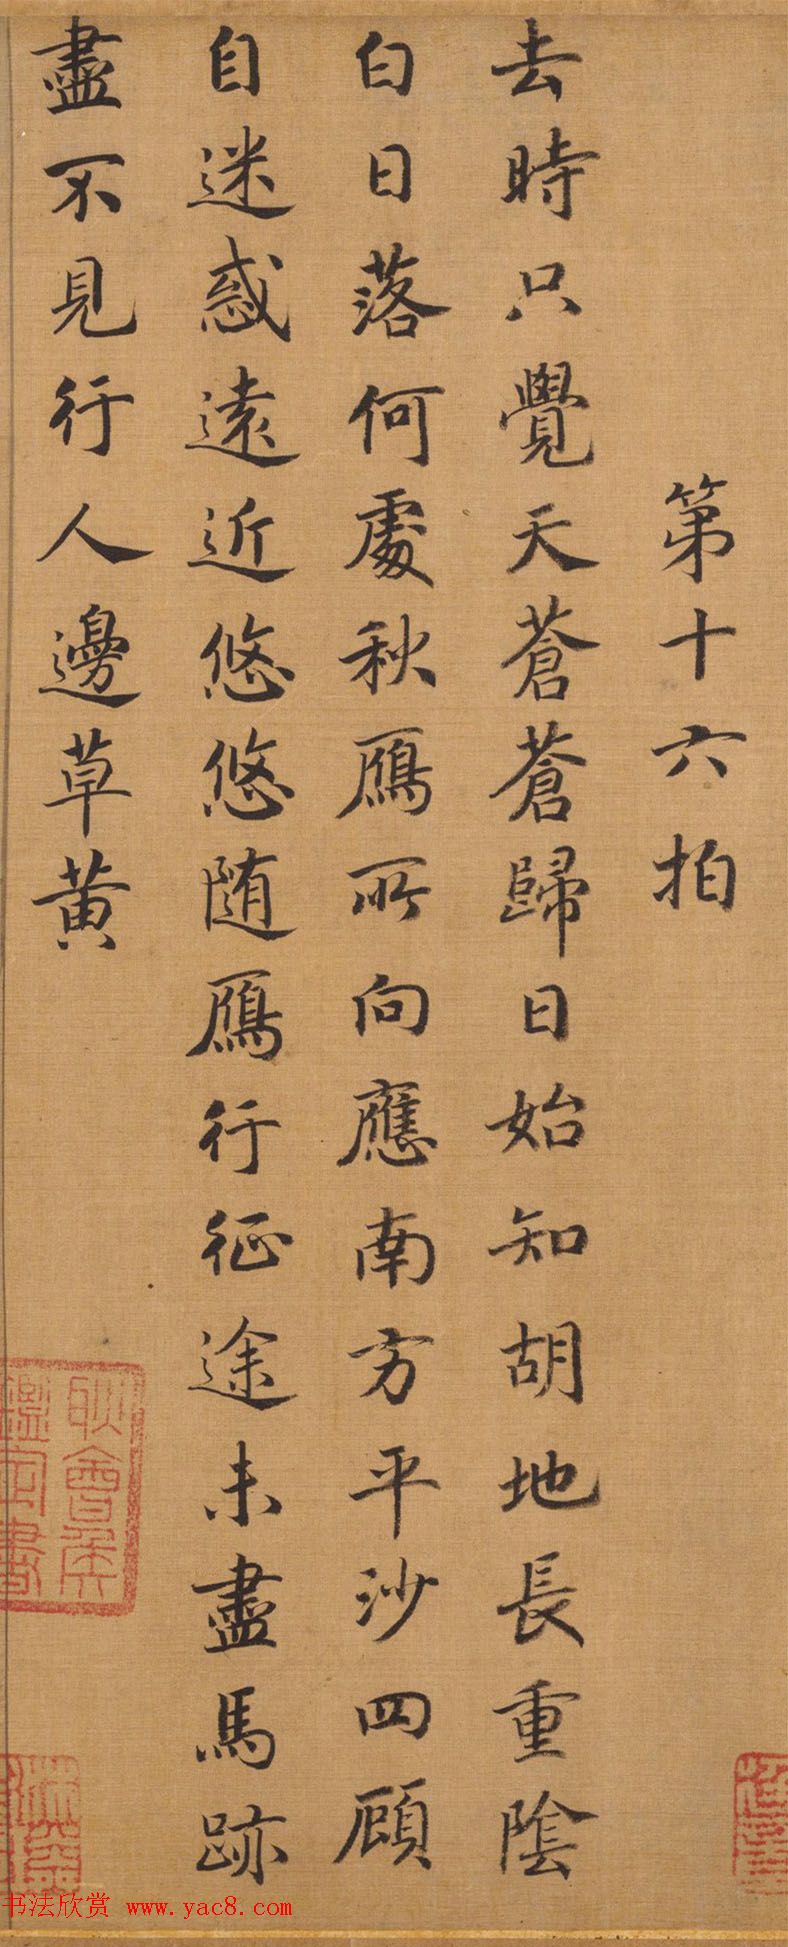 第十六拍
去時只覺天蒼蒼歸日始知胡地長重陰
白日落何處秋鴈所向應南方平沙四顧
自迷惑遠近悠悠随鴈行征途未盡馬跡
盡不見行人邊草黄
耿會侯
鑑定書
书法欣赏 www.yac8.com